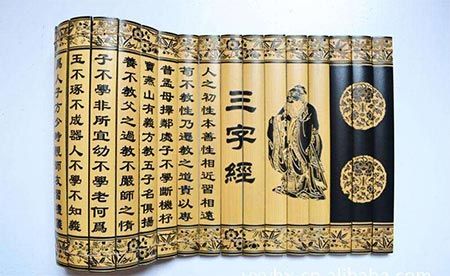 三字經
人之初性本善性相近習相遠
苟不教性乃遷教之道貴以專
昔孟母擇鄰處子不學斷機杼
竇燕山有義方教五子名俱揚
養不教父之過教不嚴師之惰
子不學非所宜幼不學老何爲
玉不琢不成器人不學不知義
爲人子方少時親師友習禮儀